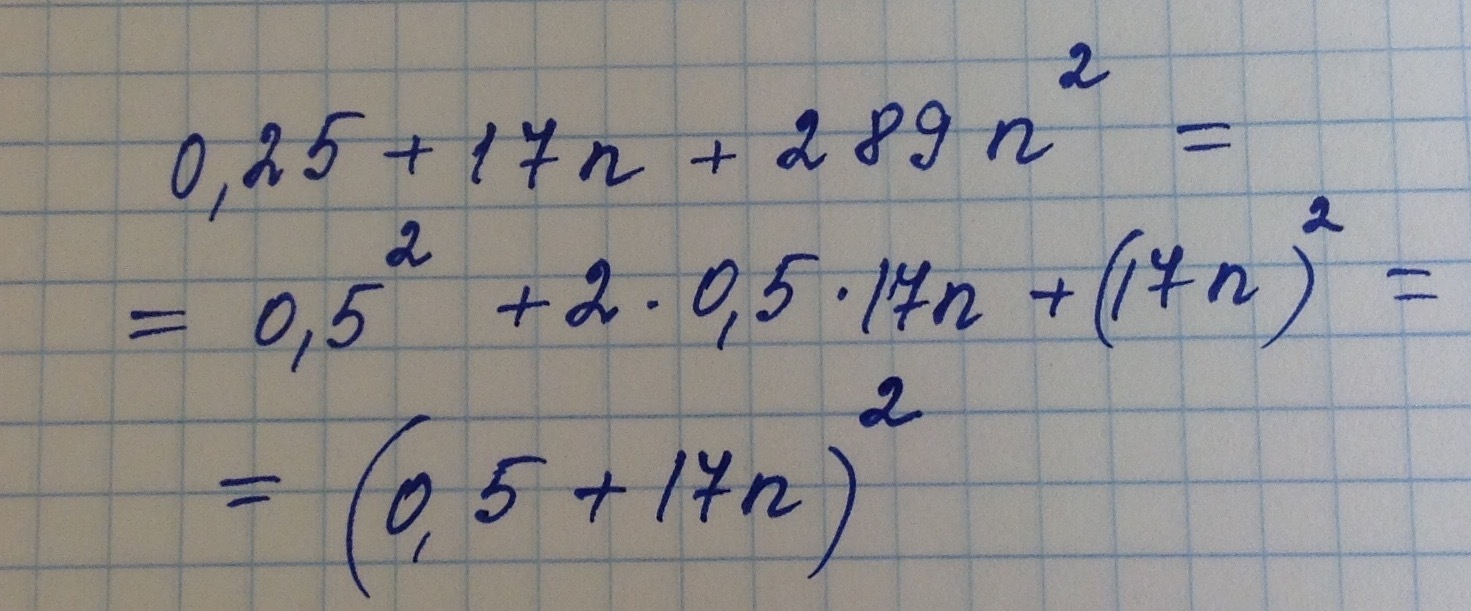 0,25 + 17n + 289n² =
= 0,5² + 2 · 0,5 · 17n + (17n)² =
= (0,5 + 17n)²